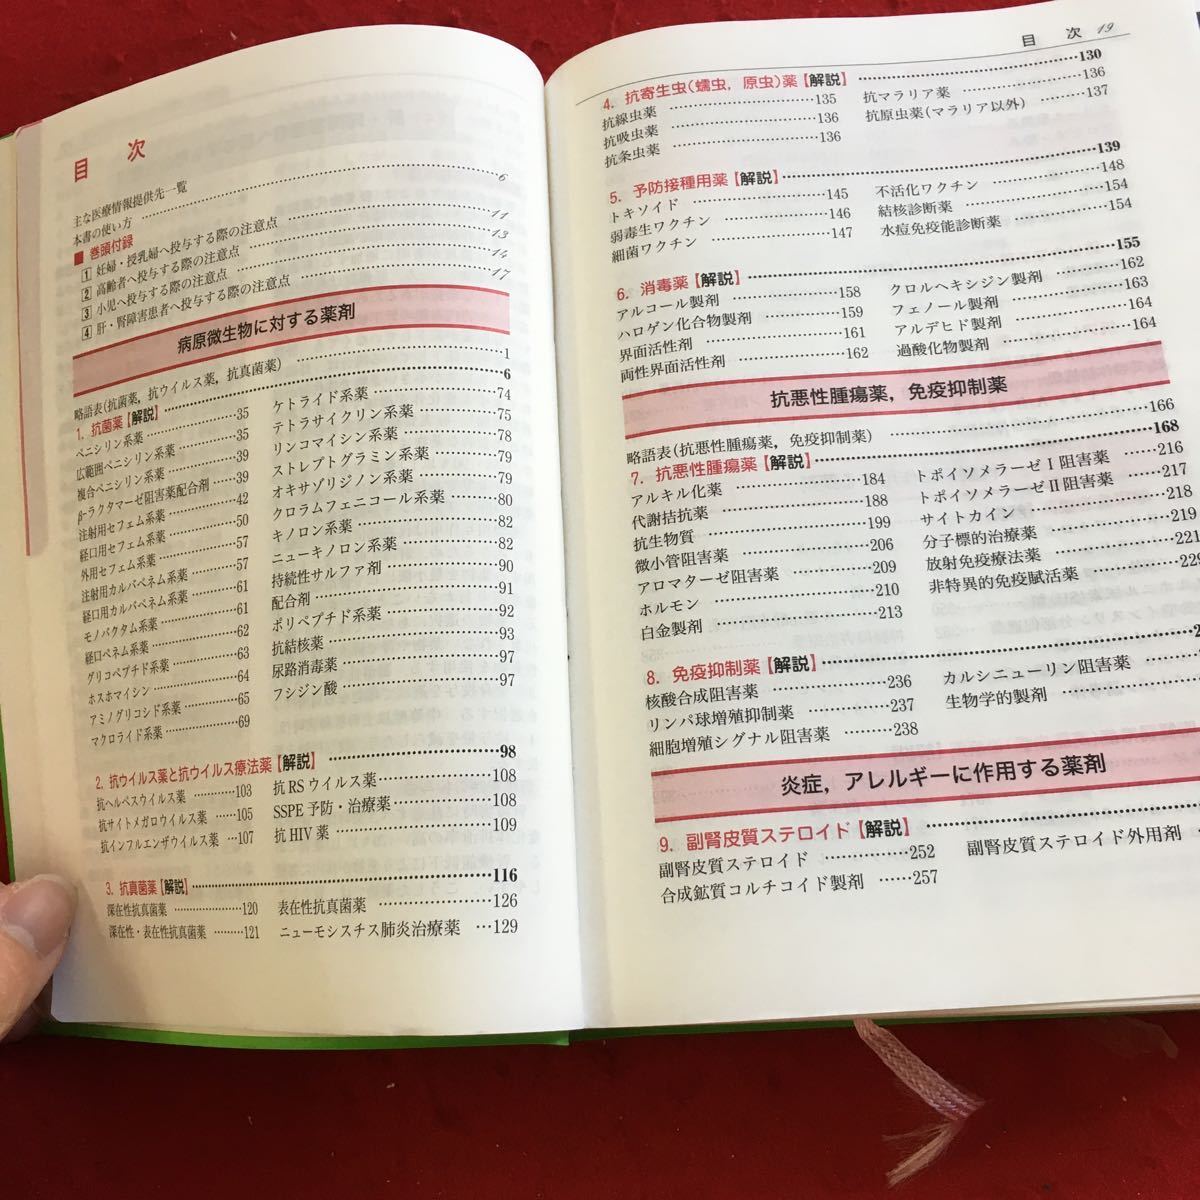 目 次
主な医療情報提供先一覧 6
本書の使い方
■ 巻頭付録
1 妊婦・授乳婦へ投与する際の注意点 11
2 高齢者へ投与する際の注意点 13
3 小児へ投与する際の注意点 14
4 肝・腎障害患者へ投与する際の注意点 17
病原微生物に対する薬剤
略語表(抗菌薬，抗ウイルス薬，抗真菌薬) 1
1. 抗菌薬【解説】 6
ペニシリン系薬 35
広範囲ペニシリン系薬 35
複合ペニシリン系薬 39
β-ラクタマーゼ阻害薬配合剤 39
注射用セフェム系薬 42
経口用セフェム系薬 50
外用セフェム系薬 57
注射用カルバペネム系薬 57
経口用カルバペネム系薬 61
モノバクタム系薬 61
経口ペネム系薬 62
グリコペプチド系薬 63
ホスホマイシン 64
アミノグリコシド系薬 65
マクロライド系薬 69
ケトライド系薬 74
テトラサイクリン系薬 75
リンコマイシン系薬 78
ストレプトグラミン系薬 79
オキサゾリジノン系薬 79
クロラムフェニコール系薬 80
キノロン系薬 82
ニューキノロン系薬 82
持続性サルファ剤 90
配合剤 91
ポリペプチド系薬 92
抗結核薬 93
尿路消毒薬 97
フシジン酸 97
2. 抗ウイルス薬と抗ウイルス療法薬【解説】 98
抗ヘルペスウイルス薬 103
抗サイトメガロウイルス薬 105
抗インフルエンザウイルス薬 107
抗RSウイルス薬 108
SSPE予防・治療薬 108
抗HIV薬 109
3. 抗真菌薬【解説】 116
深在性抗真菌薬 120
深在性・表在性抗真菌薬 121
表在性抗真菌薬 126
ニューモシスチス肺炎治療薬 129
目 次 19
4. 抗寄生虫(蠕虫，原虫)薬【解説】 130
抗線虫薬 135
抗吸虫薬 136
抗条虫薬 136
抗マラリア薬 136
抗原虫薬(マラリア以外) 137
5. 予防接種用薬【解説】 139
トキソイド 145
弱毒生ワクチン 146
細菌ワクチン 147
不活化ワクチン 148
結核診断薬 154
水痘免疫能診断薬 154
6. 消毒薬【解説】 155
アルコール製剤 158
ハロゲン化合物製剤 159
界面活性剤 161
両性界面活性剤 162
クロルヘキシジン製剤 162
フェノール製剤 163
アルデヒド製剤 164
過酸化物製剤 164
抗悪性腫瘍薬，免疫抑制薬
略語表(抗悪性腫瘍薬，免疫抑制薬) 166
7. 抗悪性腫瘍薬【解説】 168
アルキル化薬 184
代謝拮抗薬 188
抗生物質 199
微小管阻害薬 206
アロマターゼ阻害薬 209
ホルモン 210
白金製剤 213
トポイソメラーゼⅠ阻害薬 216
トポイソメラーゼⅡ阻害薬 217
サイトカイン 218
分子標的治療薬 219
放射免疫療法薬 221
非特異的免疫賦活薬 229
8. 免疫抑制薬【解説】
核酸合成阻害薬 236
リンパ球増殖抑制薬 237
細胞増殖シグナル阻害薬 238
カルシニューリン阻害薬
生物学的製剤
炎症，アレルギーに作用する薬剤
9. 副腎皮質ステロイド【解説】
副腎皮質ステロイド 252
合成鉱質コルチコイド製剤 257
副腎皮質ステロイド外用剤